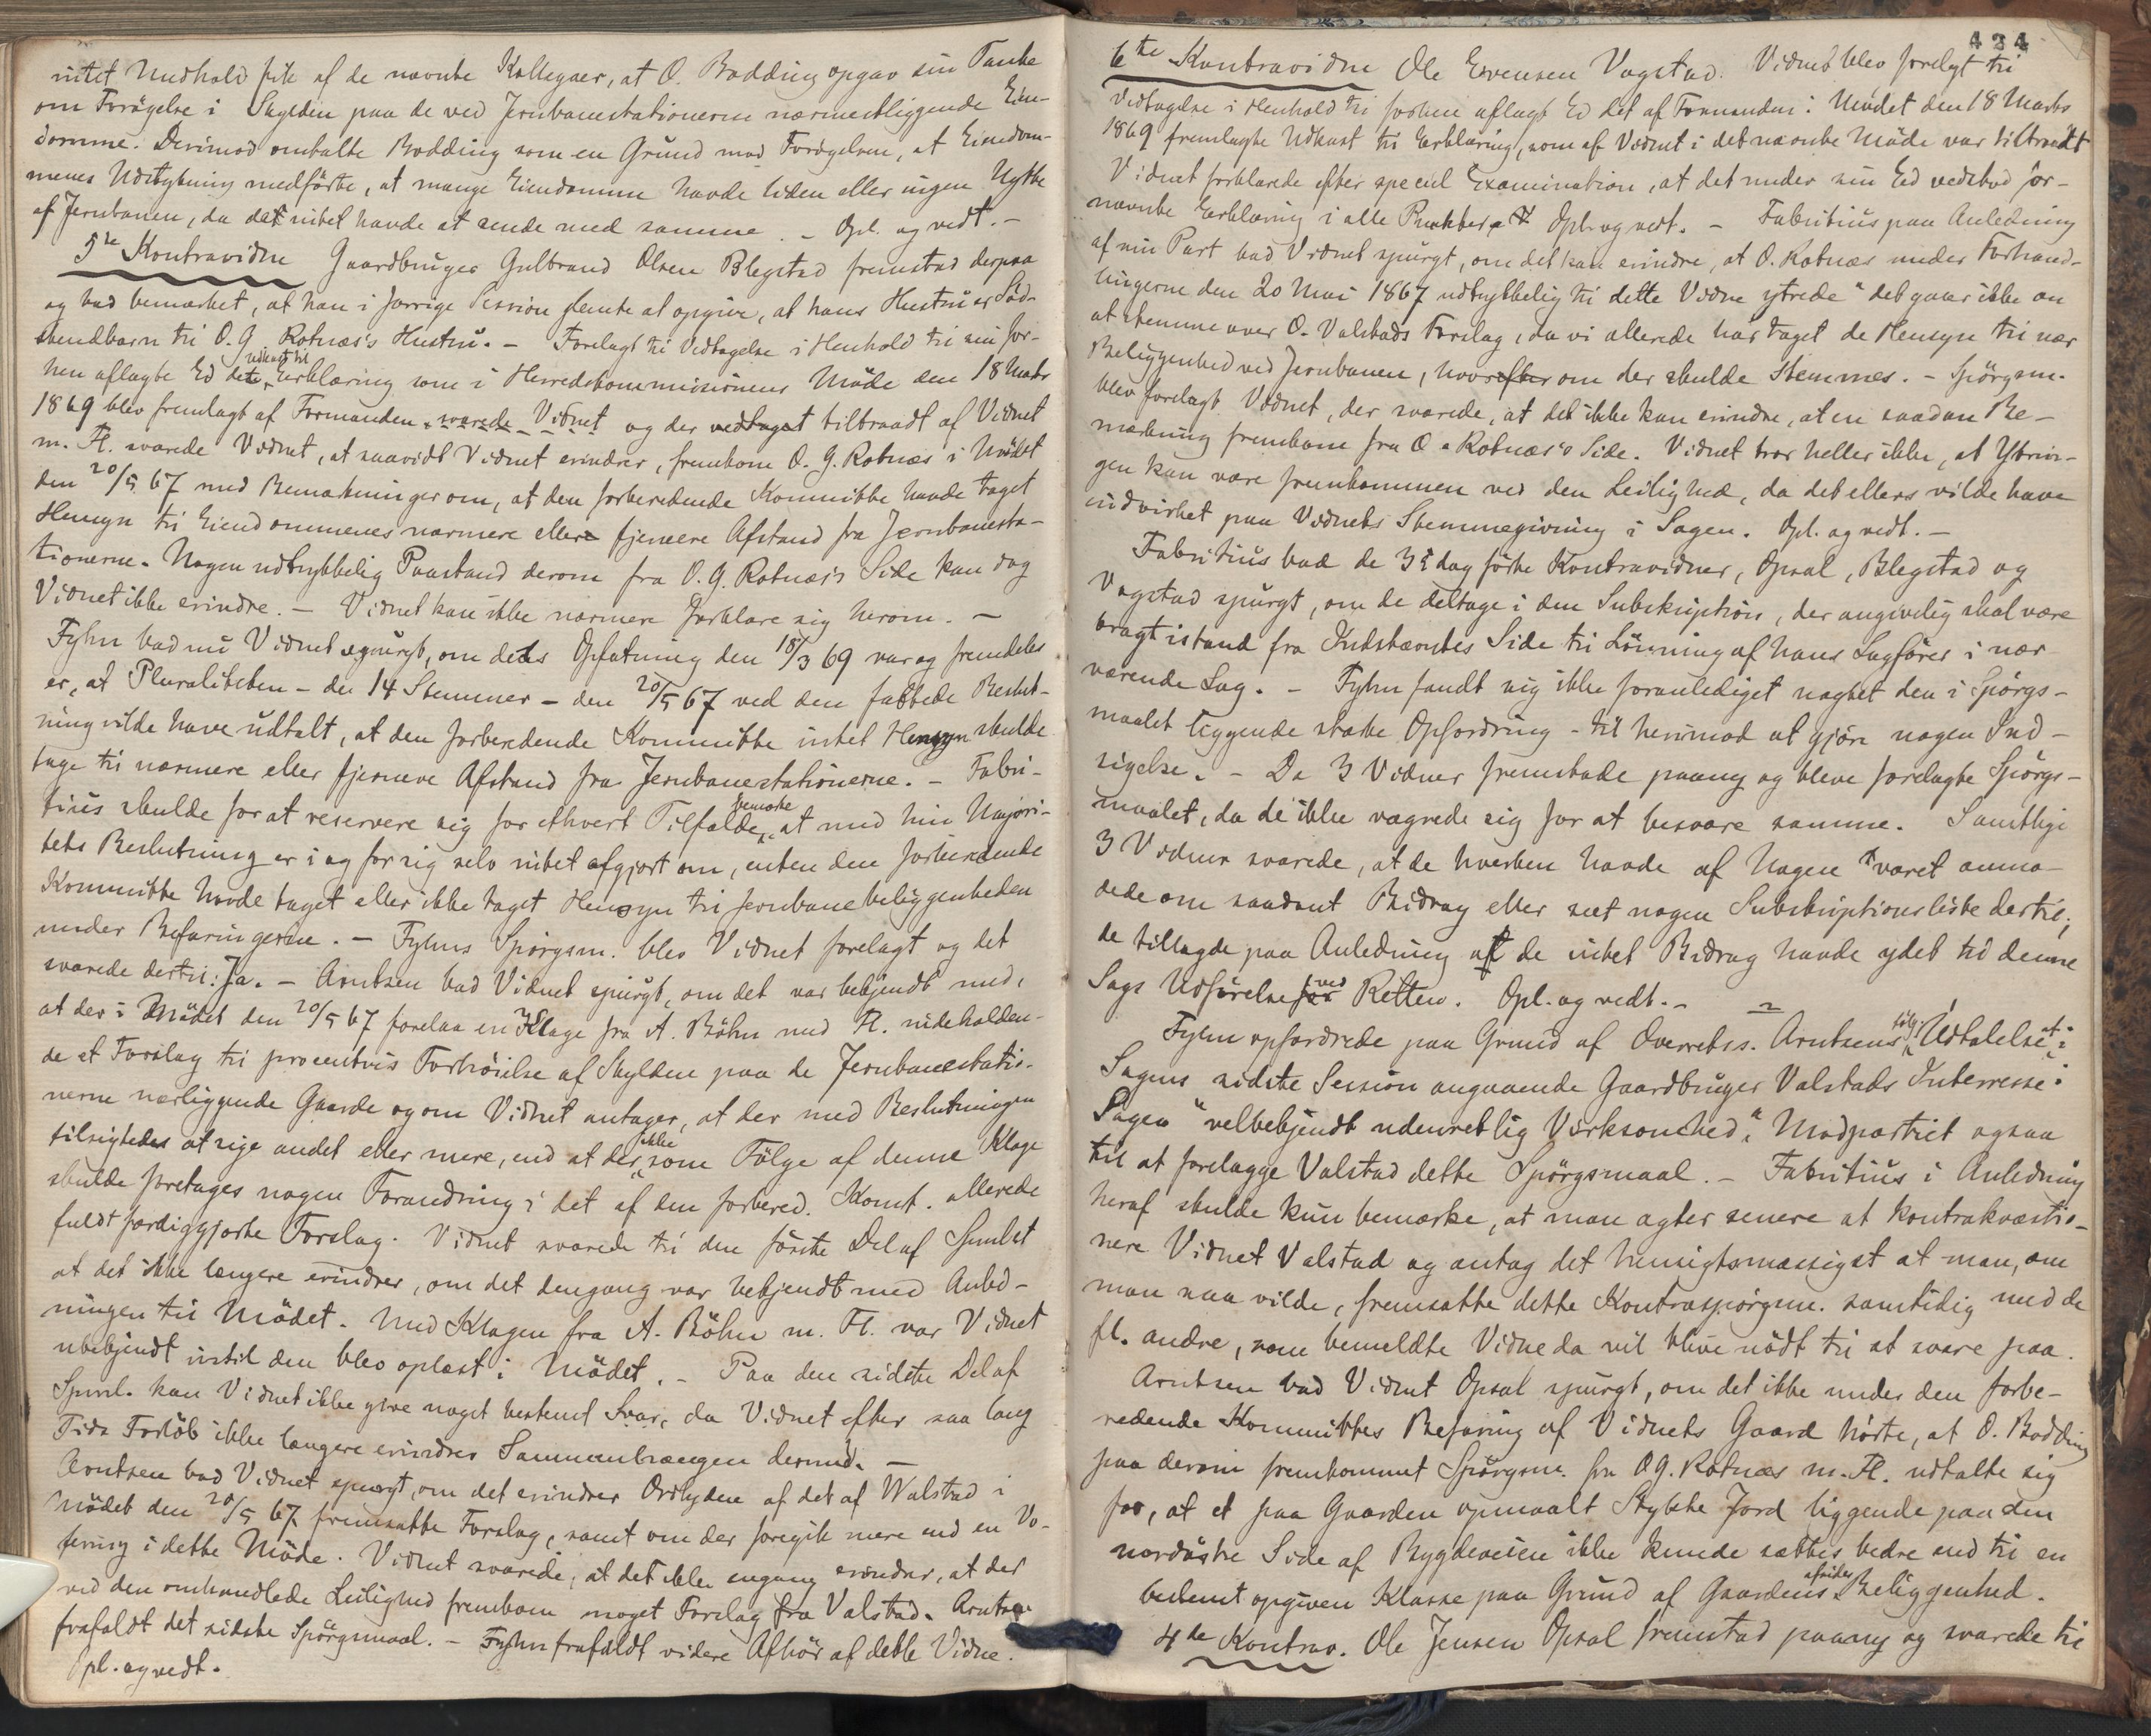 intet Medhold fik af de nævnte Kollegaer, at O. Bødding opgav sin Tanke
om Forøgelse i Skylden paa de ved Jernbanestationerne nærmestliggende Eien-
domme. Derimod omtalte Bødding som en Grund mod Forøgelsen, at Eiendom-
menes Udstykning medførte, at mange Eiendomme havde liden eller ingen Nytte
af Jernbanen, da de intet havde at sende med samme. - Opl. og vedt. -
5te Kontravidne Gaardbruger Gulbrand Olsen Blegstad fremstod derpaa
og bad bemærket, at han i forrige Session glemte at opgive, at hans Hustru er Sød-
skendbarn til O. G. Rotnæs's Hustru. - Forelagt til Vedtagelse i Henhold til sin for-
hen aflagte Ed det udkast til Erklæring som i Herredskommissionens Møde den 18 Marts
1869 blev fremlagt af Formanden svarede Vidnet og der vedtaget tiltraadt af Vidnet
m. Fl. svarede Vidnet, at saavidt Vidnet erindrer, fremkom O. G. Rotnæs i Mødet
den 20/5 67 med Bemærkninger om, at den forberedende Kommitte havde taget
Hensyn til Eiendommenes nærmere eller fjernere Afstand fra Jernbanesta-
tionerne. Nogen udtrykkelig Paastand derom fra O. G. Rotnæs's Side kan dog
Vidnet ikke erindre. - Vidnet kan ikke nærmere forklare sig herom. -
Fyhn bad nu Vidnet spurgt, om dets Opfatning den 18/3 69 var og fremdeles
er, at Pluraliteten - de 14 Stemmer - den 20/5 67 ved den fattede Beslut-
ning vilde have udtalt, at den forberedende Kommitte intet Hensyn skulde
tage til nærmere eller fjernere Afstand fra Jernbanestationerne. - Fabri-
tius skulde for at reservere sig for ethvert Tilfælde bemærke at med hin Majori-
tets Beslutning er i og for sig selv intet afgjort om, enten den forberedende
Kommitte havde taget eller ikke taget Hensyn til Jernbanebeliggenheden
under Befaringerne. - Fyhns Spørgsm. blev Vidnet forelagt og det
svarede dertil: Ja. - Arntsen bad Vidnet spurgt, om det var bekjendt med,
at der i Mødet den 20/5 67 forelaa en Klage fra A. Bøhn med Fl. indeholden-
de et Forslag til procentvis Forhøielse af Skylden paa de Jernbanestatio-
nerne nærliggende Gaarde og om Vidnet antager, at der med Beslutningen
tilsigtedes at sige andet eller mere, end at der ikke som Følge af denne Klage
skulde foretages nogen Forandring i det af den forbered. Komt. allerede
fuldt færdiggjorte Forslag. Vidnet svarede til den første Del af Spml. at
at det ikke længere erindrer, om det dengang var bekjendt med Anled-
ningen til Mødet. Med Klagen fra A. Bøhn m. Fl. var Vidnet
ubekjendt indtil den blev oplæst i Mødet. - Paa den sidste Del af
Spml. kan Vidnet ikke give noget bestemt Svar, da Vidnet efter saa lang
Tids Forløb ikke længere erindrer Sammenhængen dermed. -
Arntsen bad Vidnet spurgt, om det erindrer Ordlyden af det af Walstad i
Mødet den 20/5 67 fremsatte Forslag, samt om der foregik mere end en Vo-
tering i dette Møde. Vidnet svarede, at det ikke engang erindrer, at der
ved den omhandlede Leilighed fremkom noget Forslag fra Valstad. Arntsen
frafaldt det sidste Spørgsmaal. - Fyhn frafaldt videre Afhør af dette Vidne.
Opl. og vedt.
434
6te Kontravidne Ole Evensen Vagstad. Vidnet blev forelagt til
Vedtagelse i Henhold til forhen aflagt Ed det af Formanden i Mødet den 18 Marts
1869 fremlagte Udkast til Erklæring, som af Vidnet i det nævnte Møde var tiltraadt
Vidnet forklarede efter speciel Examination, at det under sin Ed vedstod før-
nævnte Erklæring i alle Punkter. Opl. og vedt. - Fabritius paa Anledning
af sin Part bad Vidnet spurgt, om det kan erindre, at O. Rotnæs under Forhand-
lingerne den 20 Mai 1867 udtrykkelig til dette Vidne ytrede "det gaar ikke an
at stemme over O. Valstads Forslag, da vi allerede har taget de Hensyn til nær
Beliggenhed ved Jernbanen, hvorefter om der skulde stemmes. - Spørgsm.
blev forelagt Vidnet, der svarede, at det ikke kan erindre, at en saadan Be-
mærkning fremkom fra O. Rotnæs's Side. Vidnet tror heller ikke, at Ytrin-
gen kan være fremkommen ved den Leilighed, da det ellers vilde have
indvirket paa Vidnets Stemmegivning i Sagen. Opl. og vedt. -
Fabritius bad de 3 idag førte Kontravidner, Opsal, Blegstad og
Vagstad spurgt, om de deltage i den Subskription, der angivelig skal være
bragt istand fra Indstævntes Side til Lønning af hans Sagfører i nær-
værende Sag. - Fyhn fandt sig ikke foranlediget nagtet den i Spørgs-
maalet liggende stærke Opfordring - til herimod at gjøre nogen Ind-
sigelse. - De 3 Vidner fremstode paany og bleve forelagte Spørgs-
maalet, da de ikke vægrede sig for at besvare samme. Samtlige
3 Vidner svarede, at de hverken havde af Nogen været anmo-
dede om saadant Bidrag eller seet nogen Subskriptionsliste dertil,
de tillagde paa Anledning at de intet Bidrag havde ydet til denne
Sags Udførelse ved Retten. Opl. og vedt. -
Fyhn opfordrede paa Grund af Overretss. Arntsens Udtalelse i
Sagens sidste Session angaaende Gaardbruger Valstads Interesse i
Sagen "velbekjendt udenretlig Virksomhed", Modpartiet ogsaa
til at forelægge Valstad dette Spørgsmaal. - Fabritius i Anledning
heraf skulde kun bemærke, at man agter senere at kontrakvæstio-
nere Vidnet Valstad og antog det hensigtsmæssigst at man, om
man saa vilde, fremsatte dette Kontraspørgsm. samtidig med de
fl. andre, som bemeldte Vidne da vil blive nødt til at svare paa.
Arntsen bad Vidnet Opsal spurgt, om det ikke under den forbe-
redende Kommittes Befaring af Vidnets Gaard hørte, at O. Bødding
paa derom fremkommet Spørgsm. fra O. G. Rotnæs m. Fl. udtalte sig
for, at et paa Gaarden opmaalt Stykke Jord liggende paa den
nordøstre Side af Bygdeveien ikke kunde sættes bedre end til en
bestemt opgiven Klasse paa Grund af Gaardens afsides Beliggenhed.
4de Kontrav. Ole Jensen Opsal fremstod paany og svarede til